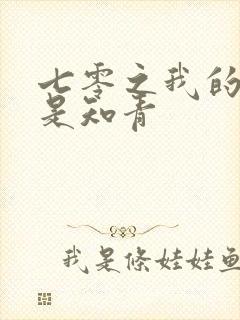 七零之我的
是知青
我是條娃娃魚